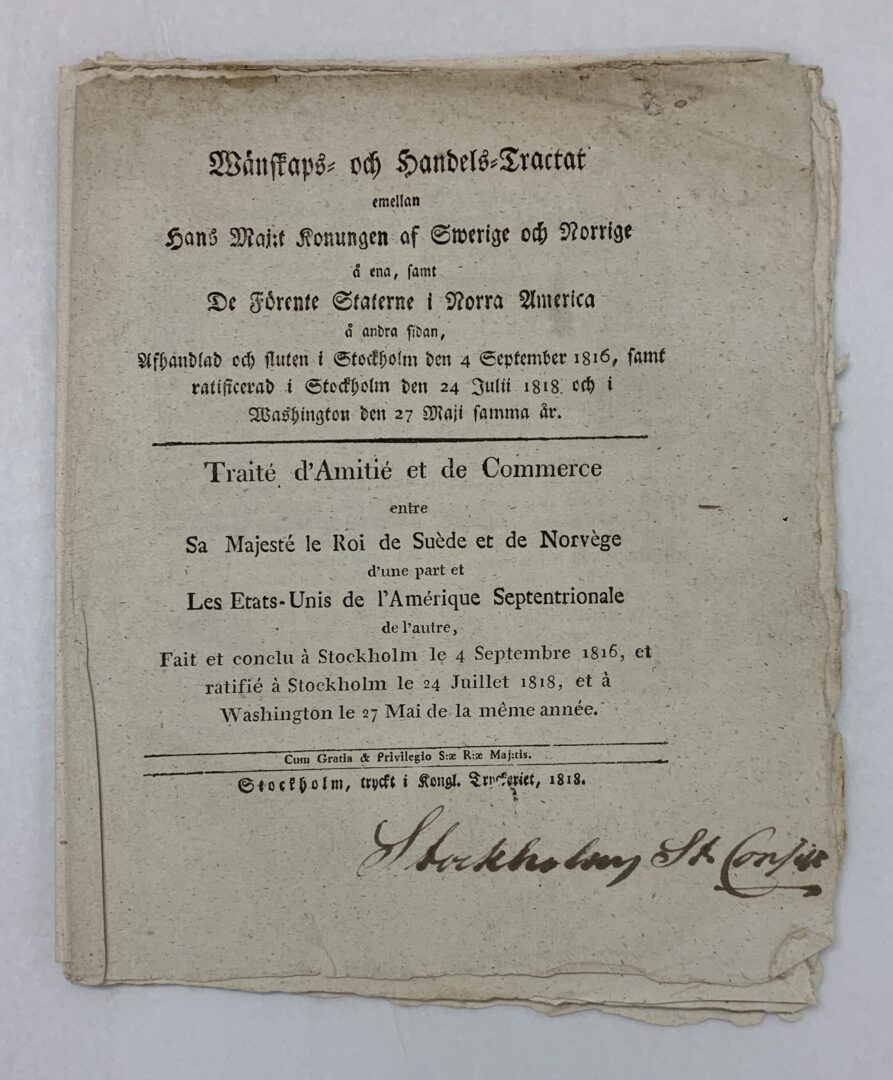 Wänskaps- och Handels-Tractat
emellan
Hans Maj:t Konungen af Swerige och Norrige
å ena, samt
De Förente Staterne i Norra America
å andra sidan,
Afhandlad och sluten i Stockholm den 4 September 1816, samt
ratificerad i Stockholm den 24 Julii 1818 och i
Washington den 27 Maji samma år.
Traité d'Amitié et de Commerce
entre
Sa Majesté le Roi de Suède et de Norvège
d'une part et
Les Etats-Unis de l'Amérique Septentrionale
de l'autre,
Fait et conclu à Stockholm le 4 Septembre 1816, et
ratifié à Stockholm le 24 Juillet 1818, et à
Washington le 27 Mai de la même année.
Cum Gratia & Privilegio S:æ R:æ Maj:tis.
Stockholm, tryckt i Kongl. Tryckeriet, 1818.
Stockholms St.